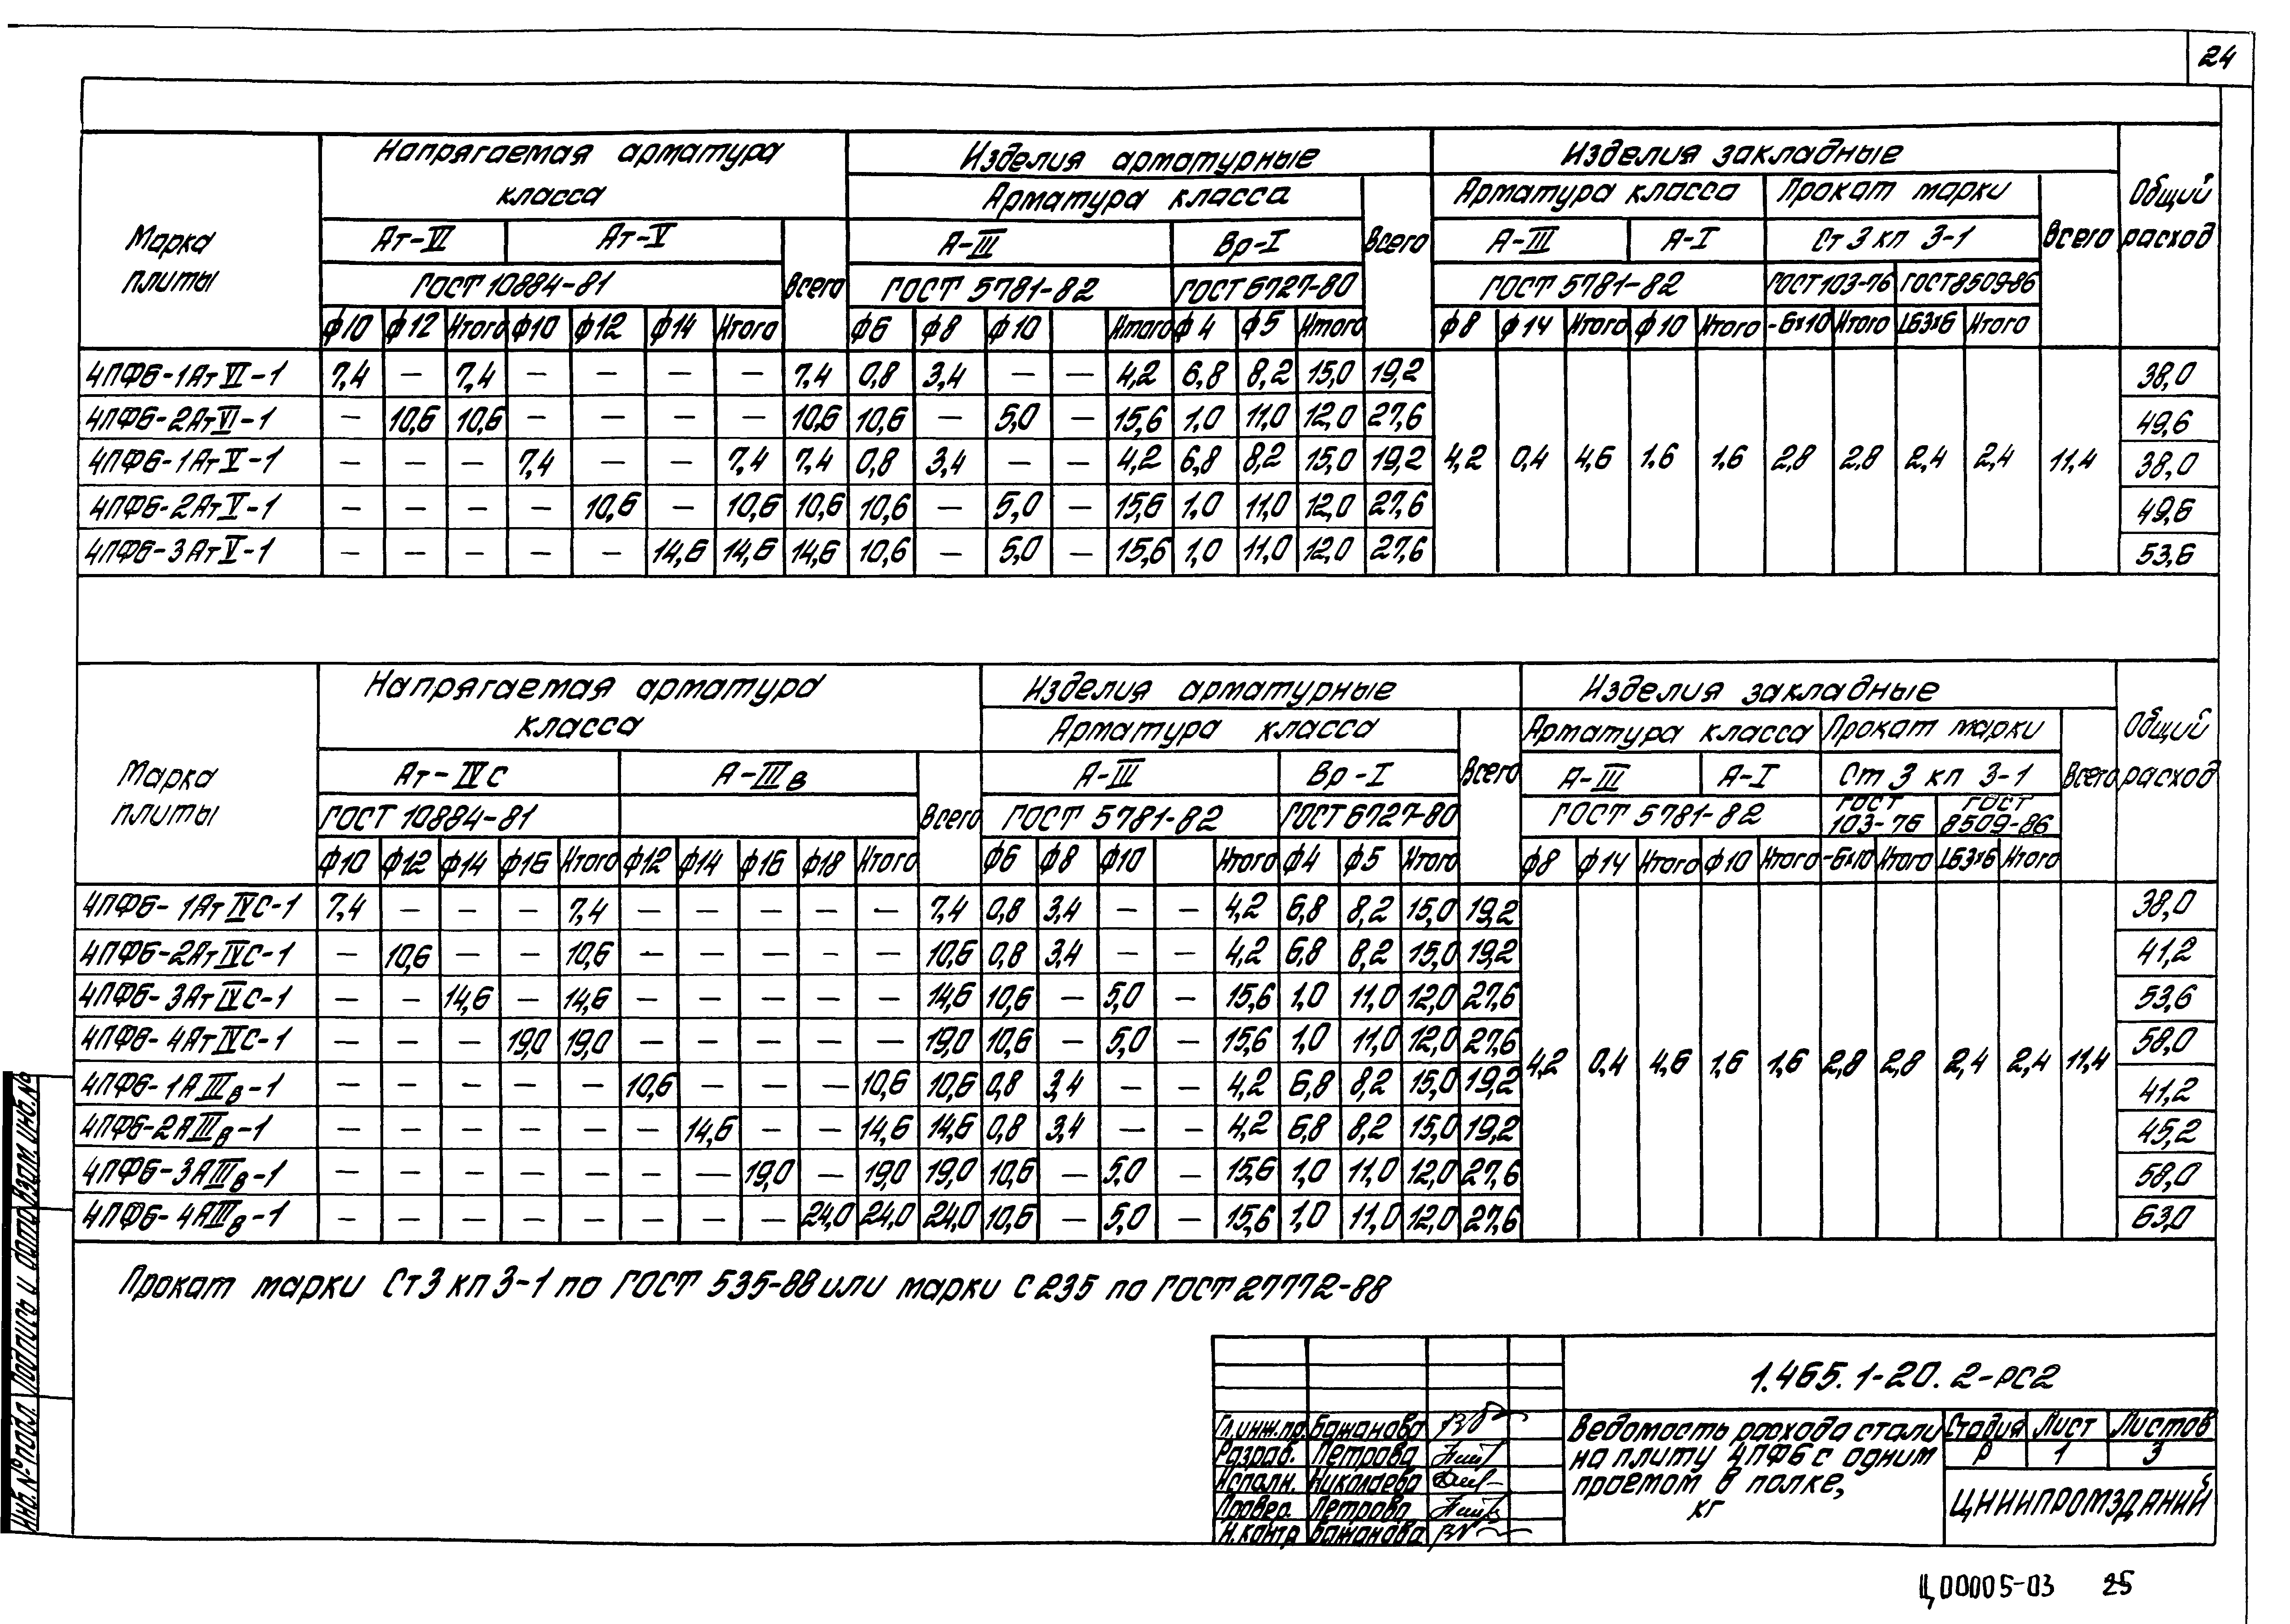 24
Марка плиты
Напрягаемая арматура класса
Изделия арматурные
Изделия закладные
Общий расход
Арматура класса
Всего
Арматура класса
Прокат марки
Всего
Ат-VI
Ат-V
Всего
А-III
Вр-I
А-III
А-I
Ст 3 кп 3-1
ГОСТ 10884-81
ГОСТ 5781-82
ГОСТ 6727-80
ГОСТ 5781-82
ГОСТ 103-76
ГОСТ 8509-86
ф10 ф12 Итого ф10 ф12 ф14 Итого ф6 ф8 ф10 Итого ф4 ф5 Итого ф8 ф14 Итого ф10 Итого -6×10 Итого L63×6 Итого
4ПФ6-1АтVI-1 7,4 — 7,4 — — — — 7,4 0,8 3,4 — — 4,2 6,8 8,2 15,0 19,2 38,0
4ПФ6-2АтVI-1 — 10,6 10,6 — — — — 10,6 10,6 — 5,0 — 15,6 1,0 11,0 12,0 27,6 49,6
4ПФ6-1АтV-1 — — — 7,4 — — 7,4 7,4 0,8 3,4 — — 4,2 6,8 8,2 15,0 19,2 4,2 0,4 4,6 1,6 1,6 2,8 2,8 2,4 2,4 11,4 38,0
4ПФ6-2АтV-1 — — — — 10,6 — 10,6 10,6 10,6 — 5,0 — 15,6 1,0 11,0 12,0 27,6 49,6
4ПФ6-3АтV-1 — — — — — 14,6 14,6 14,6 10,6 — 5,0 — 15,6 1,0 11,0 12,0 27,6 53,6
Марка плиты
Напрягаемая арматура класса
Изделия арматурные
Изделия закладные
Общий расход
Арматура класса
Всего
Арматура класса
Прокат марки
Всего
Ат-IVС
А-IIIв
Всего
А-III
Вр-I
А-III
А-I
Ст 3 кп 3-1
ГОСТ 10884-81
ГОСТ 5781-82
ГОСТ 6727-80
ГОСТ 5781-82
ГОСТ 103-76
ГОСТ 8509-86
ф10 ф12 ф14 ф16 Итого ф12 ф14 ф16 ф18 Итого ф6 ф8 ф10 Итого ф4 ф5 Итого ф8 ф14 Итого ф10 Итого -6×10 Итого L63×6 Итого
4ПФ6-1АтIVС-1 7,4 — — — 7,4 — — — — — 7,4 0,8 3,4 — — 4,2 6,8 8,2 15,0 19,2 38,0
4ПФ6-2АтIVС-1 — 10,6 — — 10,6 — — — — — 10,6 0,8 3,4 — — 4,2 6,8 8,2 15,0 19,2 41,2
4ПФ6-3АтIVС-1 — — 14,6 — 14,6 — — — — — 14,6 10,6 — 5,0 — 15,6 1,0 11,0 12,0 27,6 53,6
4ПФ6-4АтIVС-1 — — — 19,0 19,0 — — — — — 19,0 10,6 — 5,0 — 15,6 1,0 11,0 12,0 27,6 58,0
4ПФ6-1АIIIв-1 — — — — — 10,6 — — — 10,6 10,6 0,8 3,4 — — 4,2 6,8 8,2 15,0 19,2 4,2 0,4 4,6 1,6 1,6 2,8 2,8 2,4 2,4 11,4 41,2
4ПФ6-2АIIIв-1 — — — — — — 14,6 — — 14,6 14,6 0,8 3,4 — — 4,2 6,8 8,2 15,0 19,2 45,2
4ПФ6-3АIIIв-1 — — — — — — — 19,0 — 19,0 19,0 10,6 — 5,0 — 15,6 1,0 11,0 12,0 27,6 58,0
4ПФ6-4АIIIв-1 — — — — — — — — 24,0 24,0 24,0 10,6 — 5,0 — 15,6 1,0 11,0 12,0 27,6 63,0
Прокат марки Ст3 кп 3-1 по ГОСТ 535-88 или марки С235 по ГОСТ 27772-88
1.465.1-20.2-РС2
Гл.инж.пр. Бажанова
Разраб. Петрова
Исполн. Николаева
Провер. Петрова
Н.контр Бажанова
Ведомость расхода стали
на плиту 4ПФ6 с одним
проемом в полке,
кг
Стадия Лист Листов
Р 1 3
ЦНИИПРОМЗДАНИЙ
Инв.№ подл. Подпись и дата Взам.инв.№
Ц00005-03 25